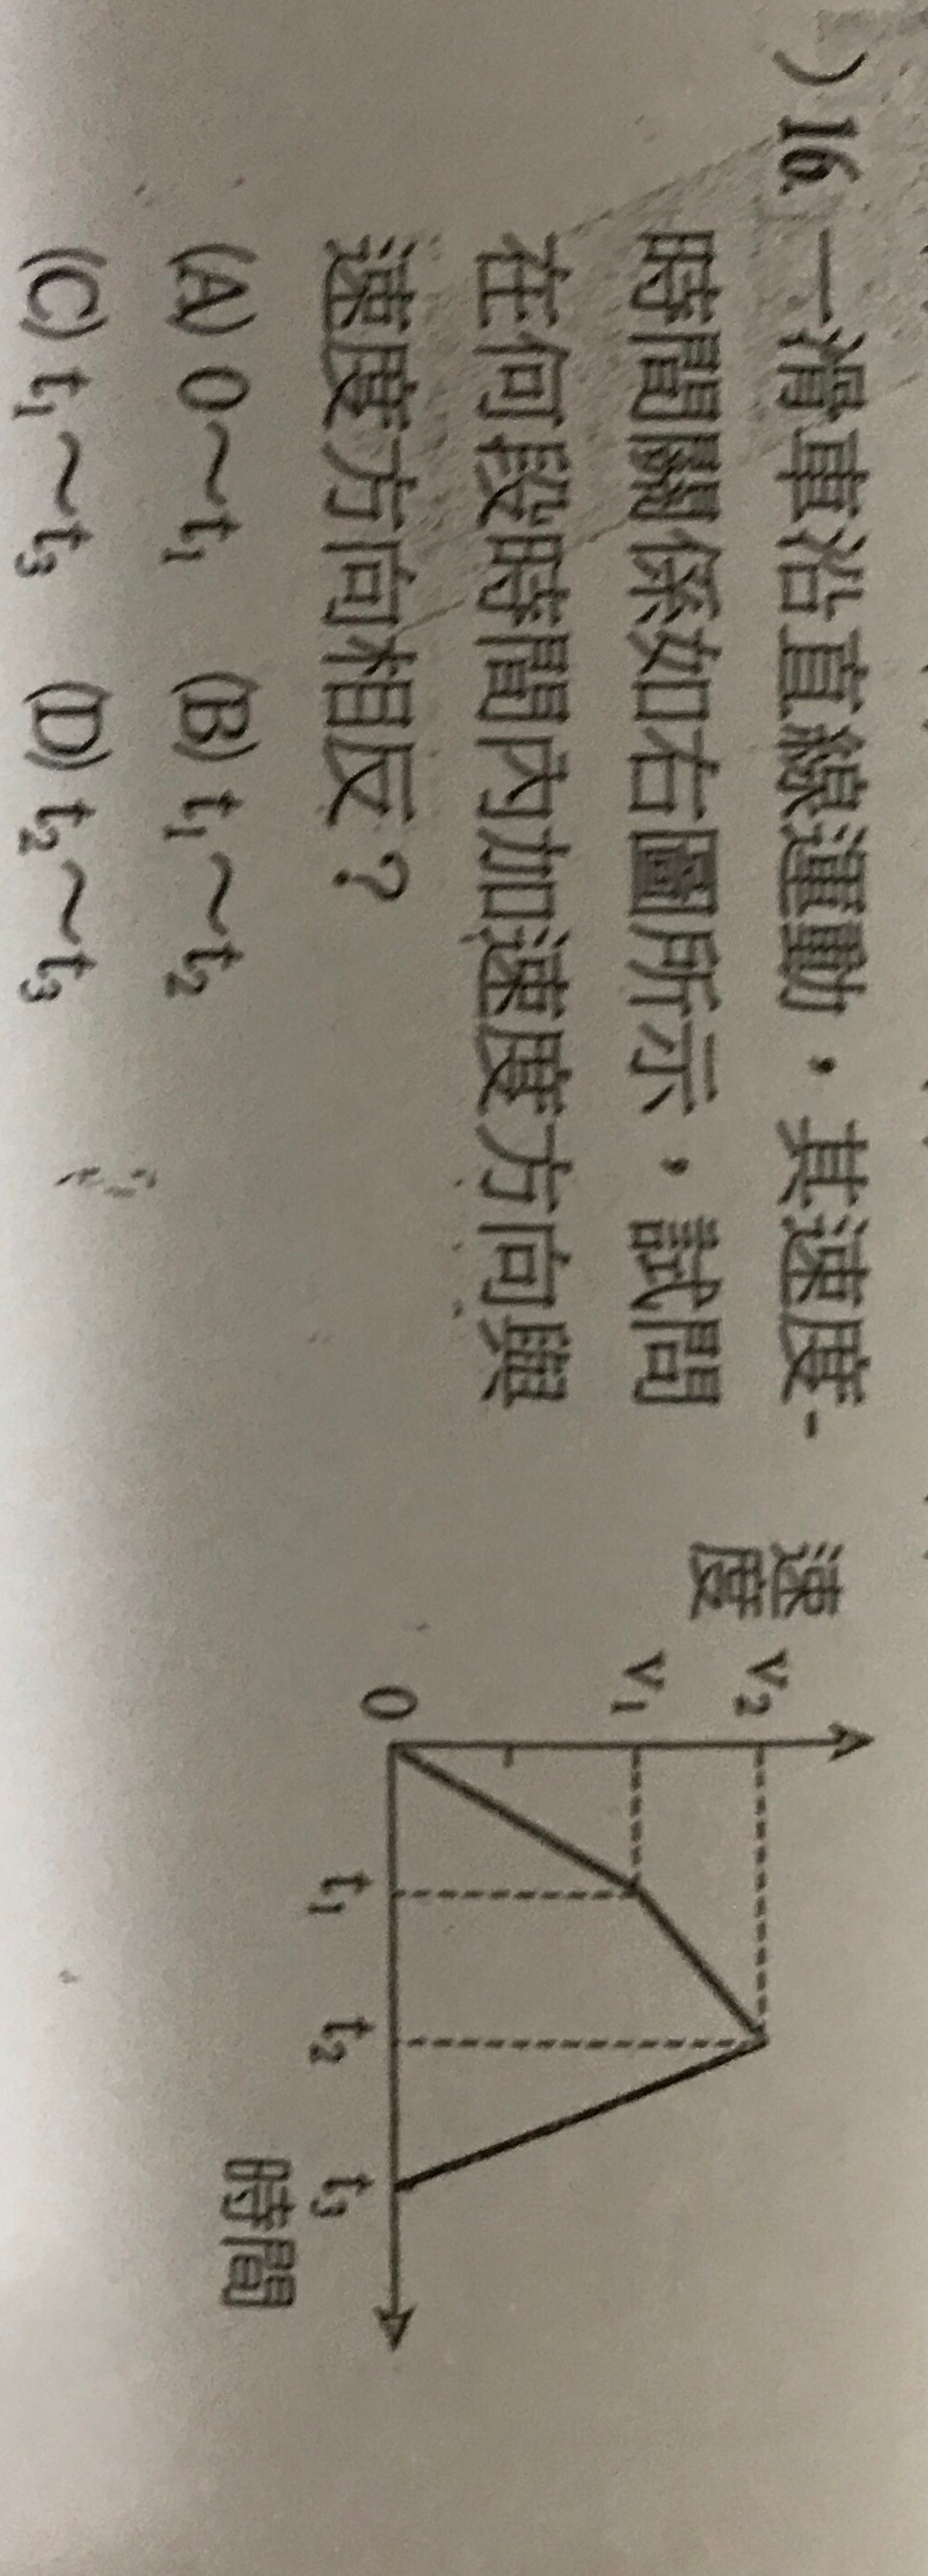 )16.一滑車沿直線運動，其速度-
時間關係如右圖所示，試問
在何段時間內加速度方向與
速度方向相反？
(A) 0～t₁ (B) t₁～t₂
(C) t₁～t₃ (D) t₂～t₃
速度
v₂
v₁
0
t₁ t₂ t₃
時間